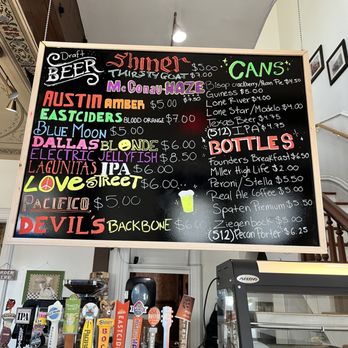 Draft
BEER
Shiner $5.00
THIRSTY GOAT $7.00
McConay-HAZE
AUSTIN AMBER $5.00
EASTCIDERS BLOOD ORANGE $7.00
BLUE MOON $5.00
DALLAS BLONDE $6.00
ELECTRIC JELLYFISH $8.50
LAGUNITAS IPA $6.00
LOVE STREET $6.00
PACIFICO $5.00
DEVILS BACKBONE $6.00
CANS
Guiness $5.00
Lone River $4.00
Lone Star/Modelo $4.00
Texas Beer $4.75
(512) IPA $4.75
BOTTLES
Founders Breakfast $6.50
Miller High Life $2.00
Peroni/Stella $5.50
Real Ale Coffee $5.00
Spaten Premium $2.50
Ziegenbock $5.00
(512) Pecan Porter $6.25
IPA
EASTCIDERS